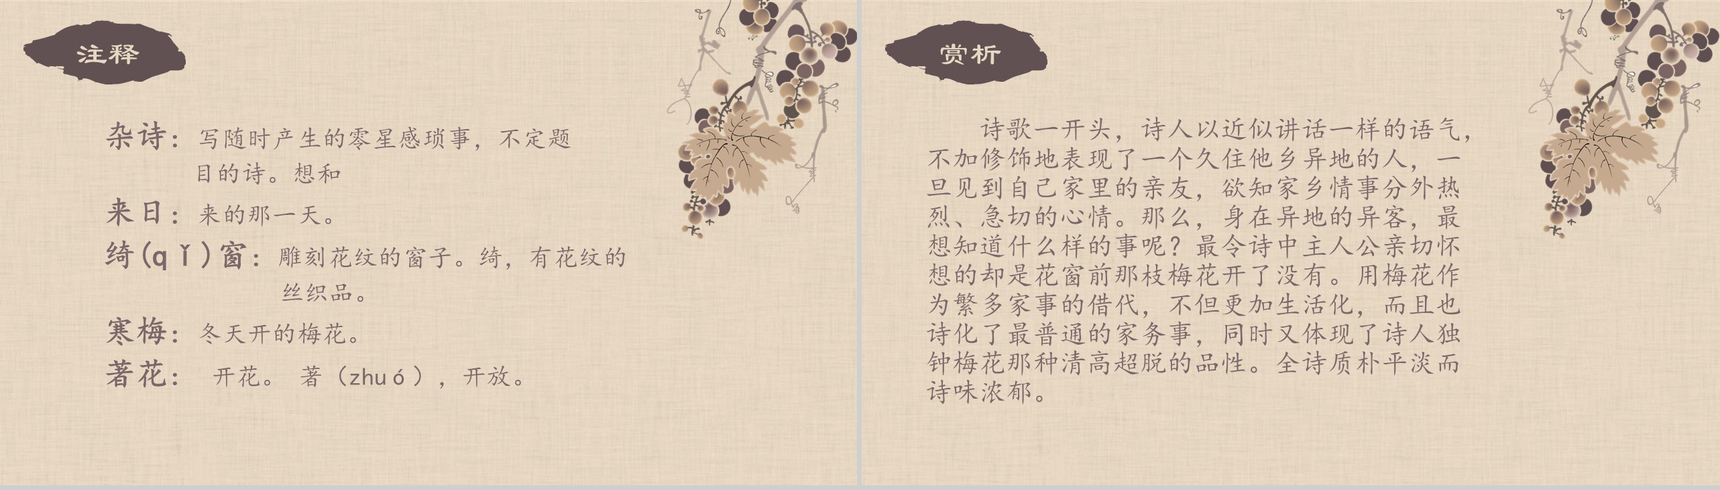 注释
杂诗：写随时产生的零星感琐事，不定题
目的诗。想和
来日：来的那一天。
绮(qǐ)窗：雕刻花纹的窗子。绮，有花纹的
丝织品。
寒梅：冬天开的梅花。
著花： 开花。 著（zhuó），开放。
赏析
诗歌一开头，诗人以近似讲话一样的语气，
不加修饰地表现了一个久住他乡异地的人，一
旦见到自己家里的亲友，欲知家乡情事分外热
烈、急切的心情。那么，身在异地的异客，最
想知道什么样的事呢？最令诗中主人公亲切怀
想的却是花窗前那枝梅花开了没有。用梅花作
为繁多家事的借代，不但更加生活化，而且也
诗化了最普通的家务事，同时又体现了诗人独
钟梅花那种清高超脱的品性。全诗质朴平淡而
诗味浓郁。